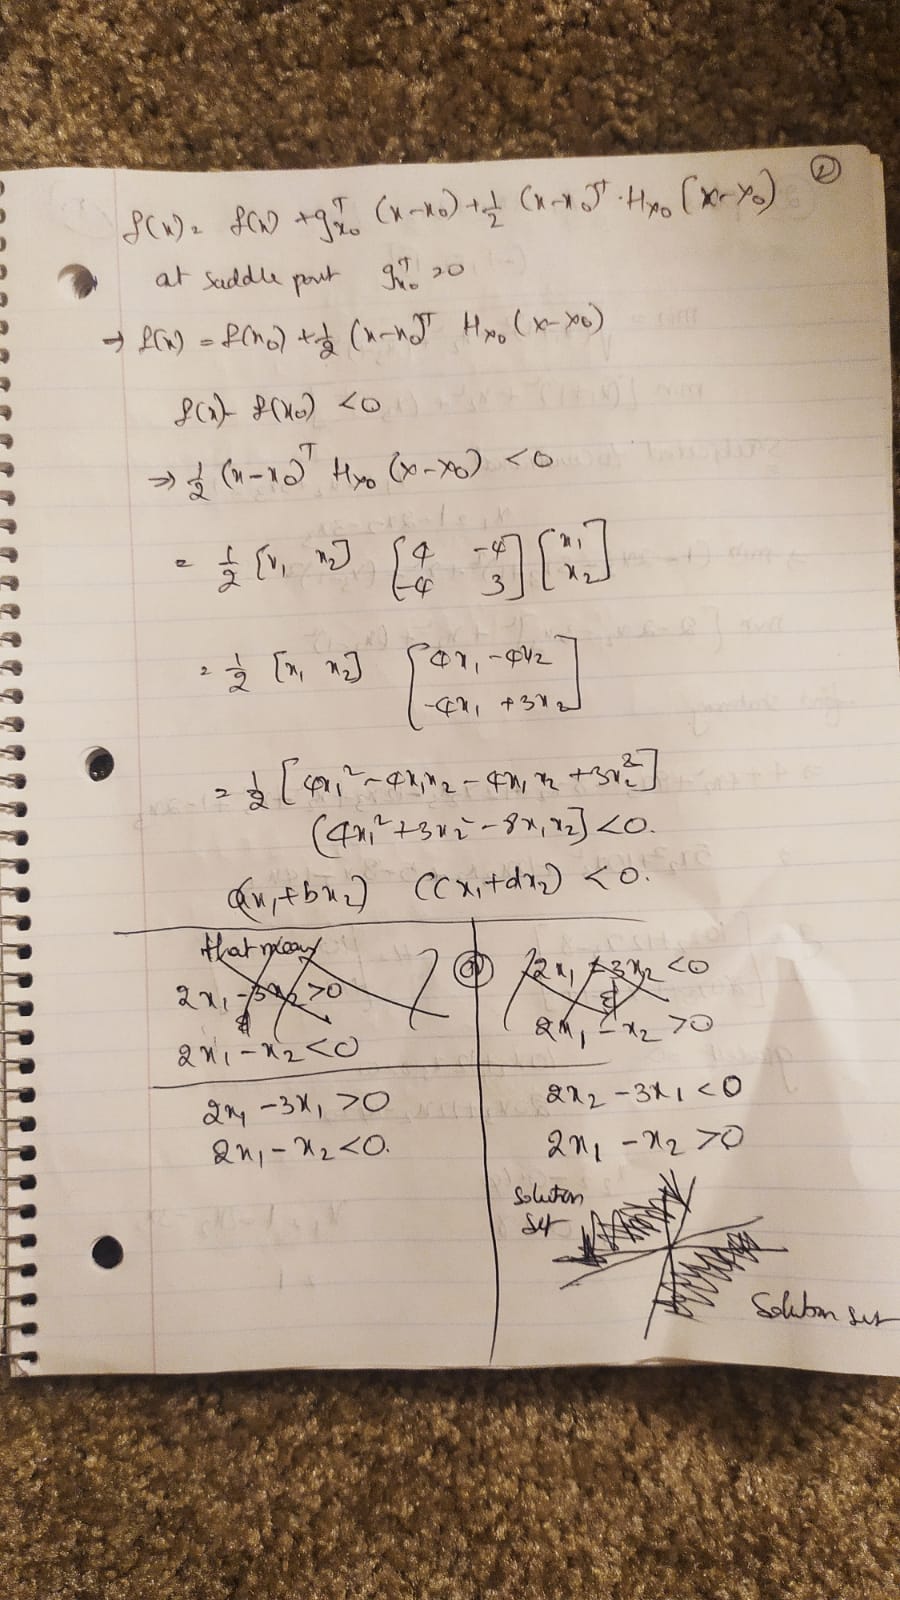 ②
f(x) = f(x) + gᵀₓ₀ (x-x₀) + 1/2 (x-x₀)ᵀ · Hₓ₀ (x-x₀)
at saddle point gᵀₓ₀ = 0
→ f(x) = f(x₀) + 1/2 (x-x₀)ᵀ Hₓ₀ (x-x₀)
f(x) - f(x₀) < 0
⇒ 1/2 (x-x₀)ᵀ Hₓ₀ (x-x₀) < 0
= 1/2 [x₁ x₂] [4 -4; -4 3] [x₁; x₂]
= 1/2 [x₁ x₂] [4x₁ - 4x₂; -4x₁ + 3x₂]
= 1/2 [4x₁² - 4x₁x₂ - 4x₁x₂ + 3x₂²]
(4x₁² + 3x₂² - 8x₁x₂] < 0.
(ax₁ + bx₂) (cx₁ + dx₂) < 0.
that means
2x₁ - 3x₂ > 0
&
2x₁ - x₂ < 0
2x₁ - 3x₁ > 0
2x₁ - x₂ < 0.
or
2x₁ - 3x₂ < 0
&
2x₁ - x₂ > 0
2x₂ - 3x₁ < 0
2x₁ - x₂ > 0
solution
set
Solution set